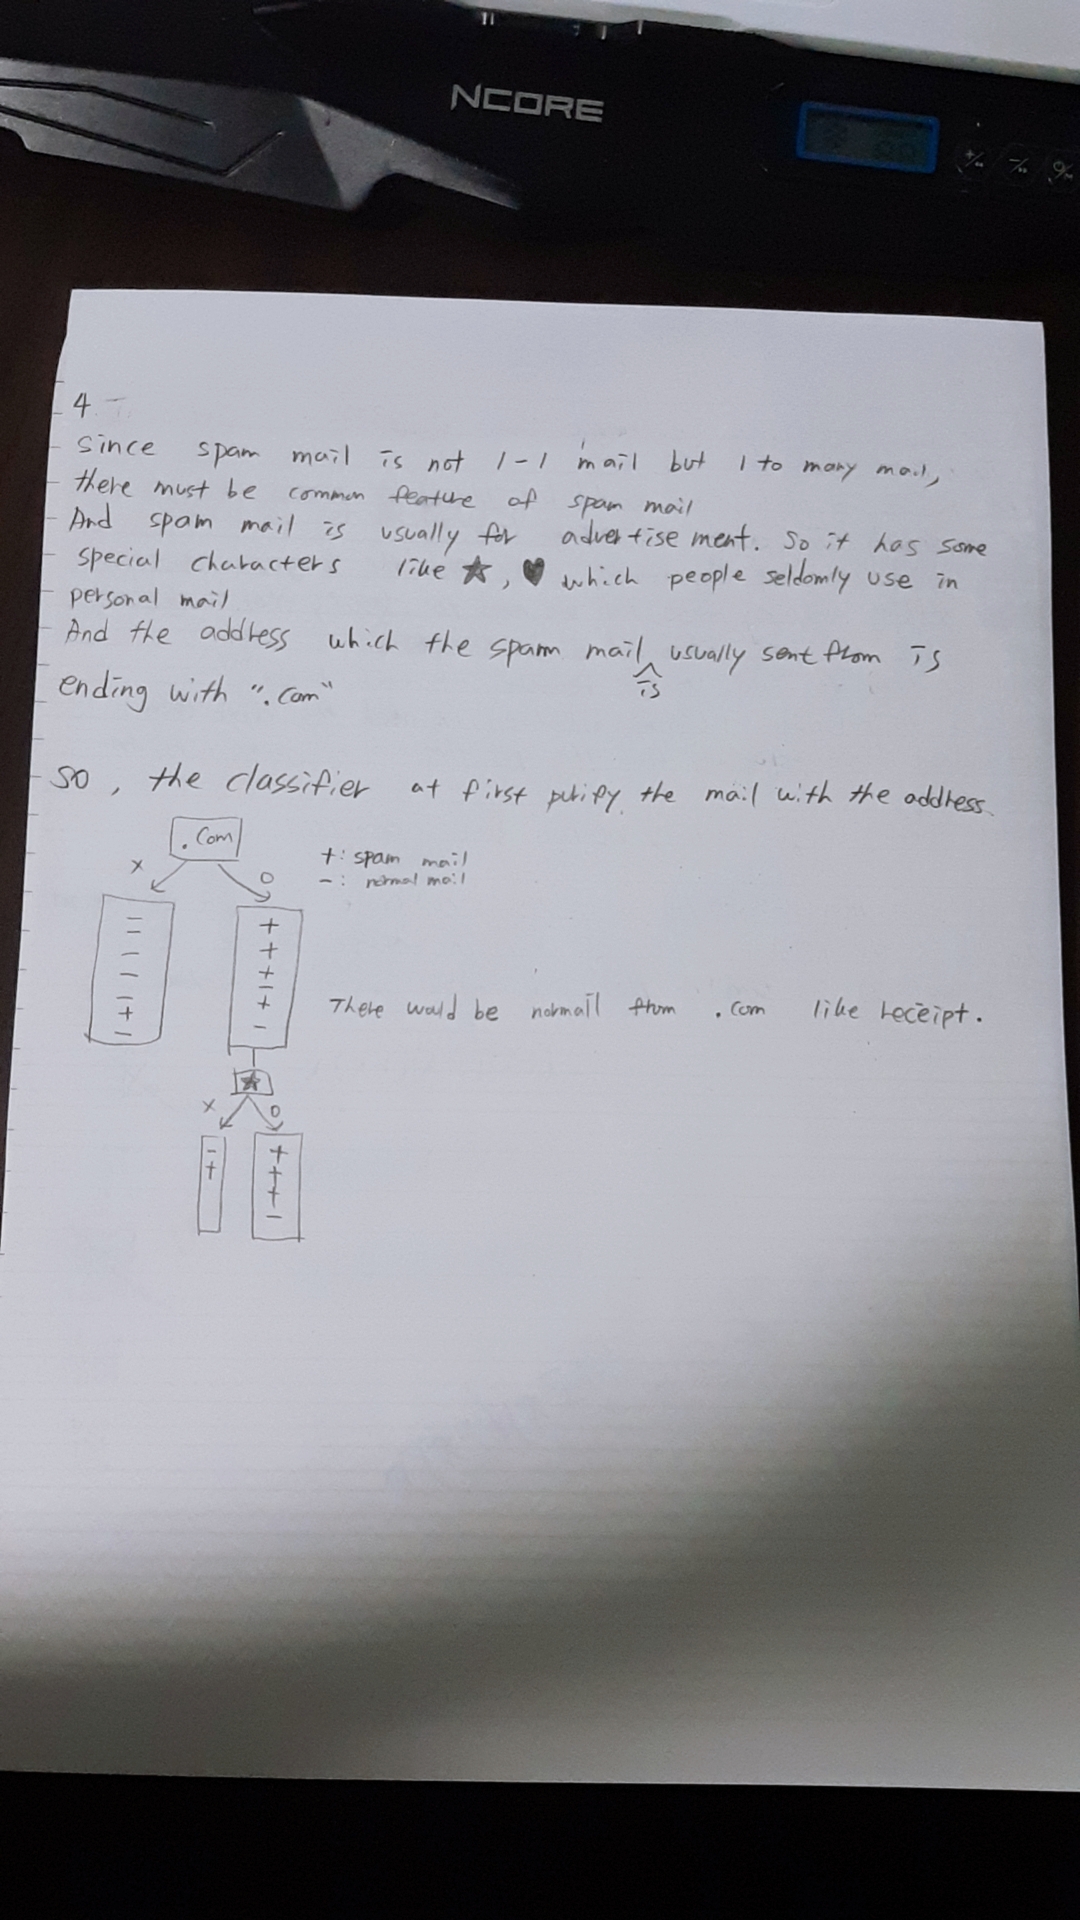 NCORE
4
Since spam mail is not 1-1 mail but 1 to many mail,
there must be common feature of spam mail
And spam mail is usually for advertisement. So it has some
special characters like ★, ♥ which people seldomly use in
personal mail
And the address which the spam mail is usually sent from is
ending with ".com"
so, the classifier at first purify the mail with the address
.com
X O
+: spam mail
-: normal mail
- +
- +
- +
- -
- +
+ -
-
There would be normail from .com like receipt.
★
X O
- +
+ +
+
-